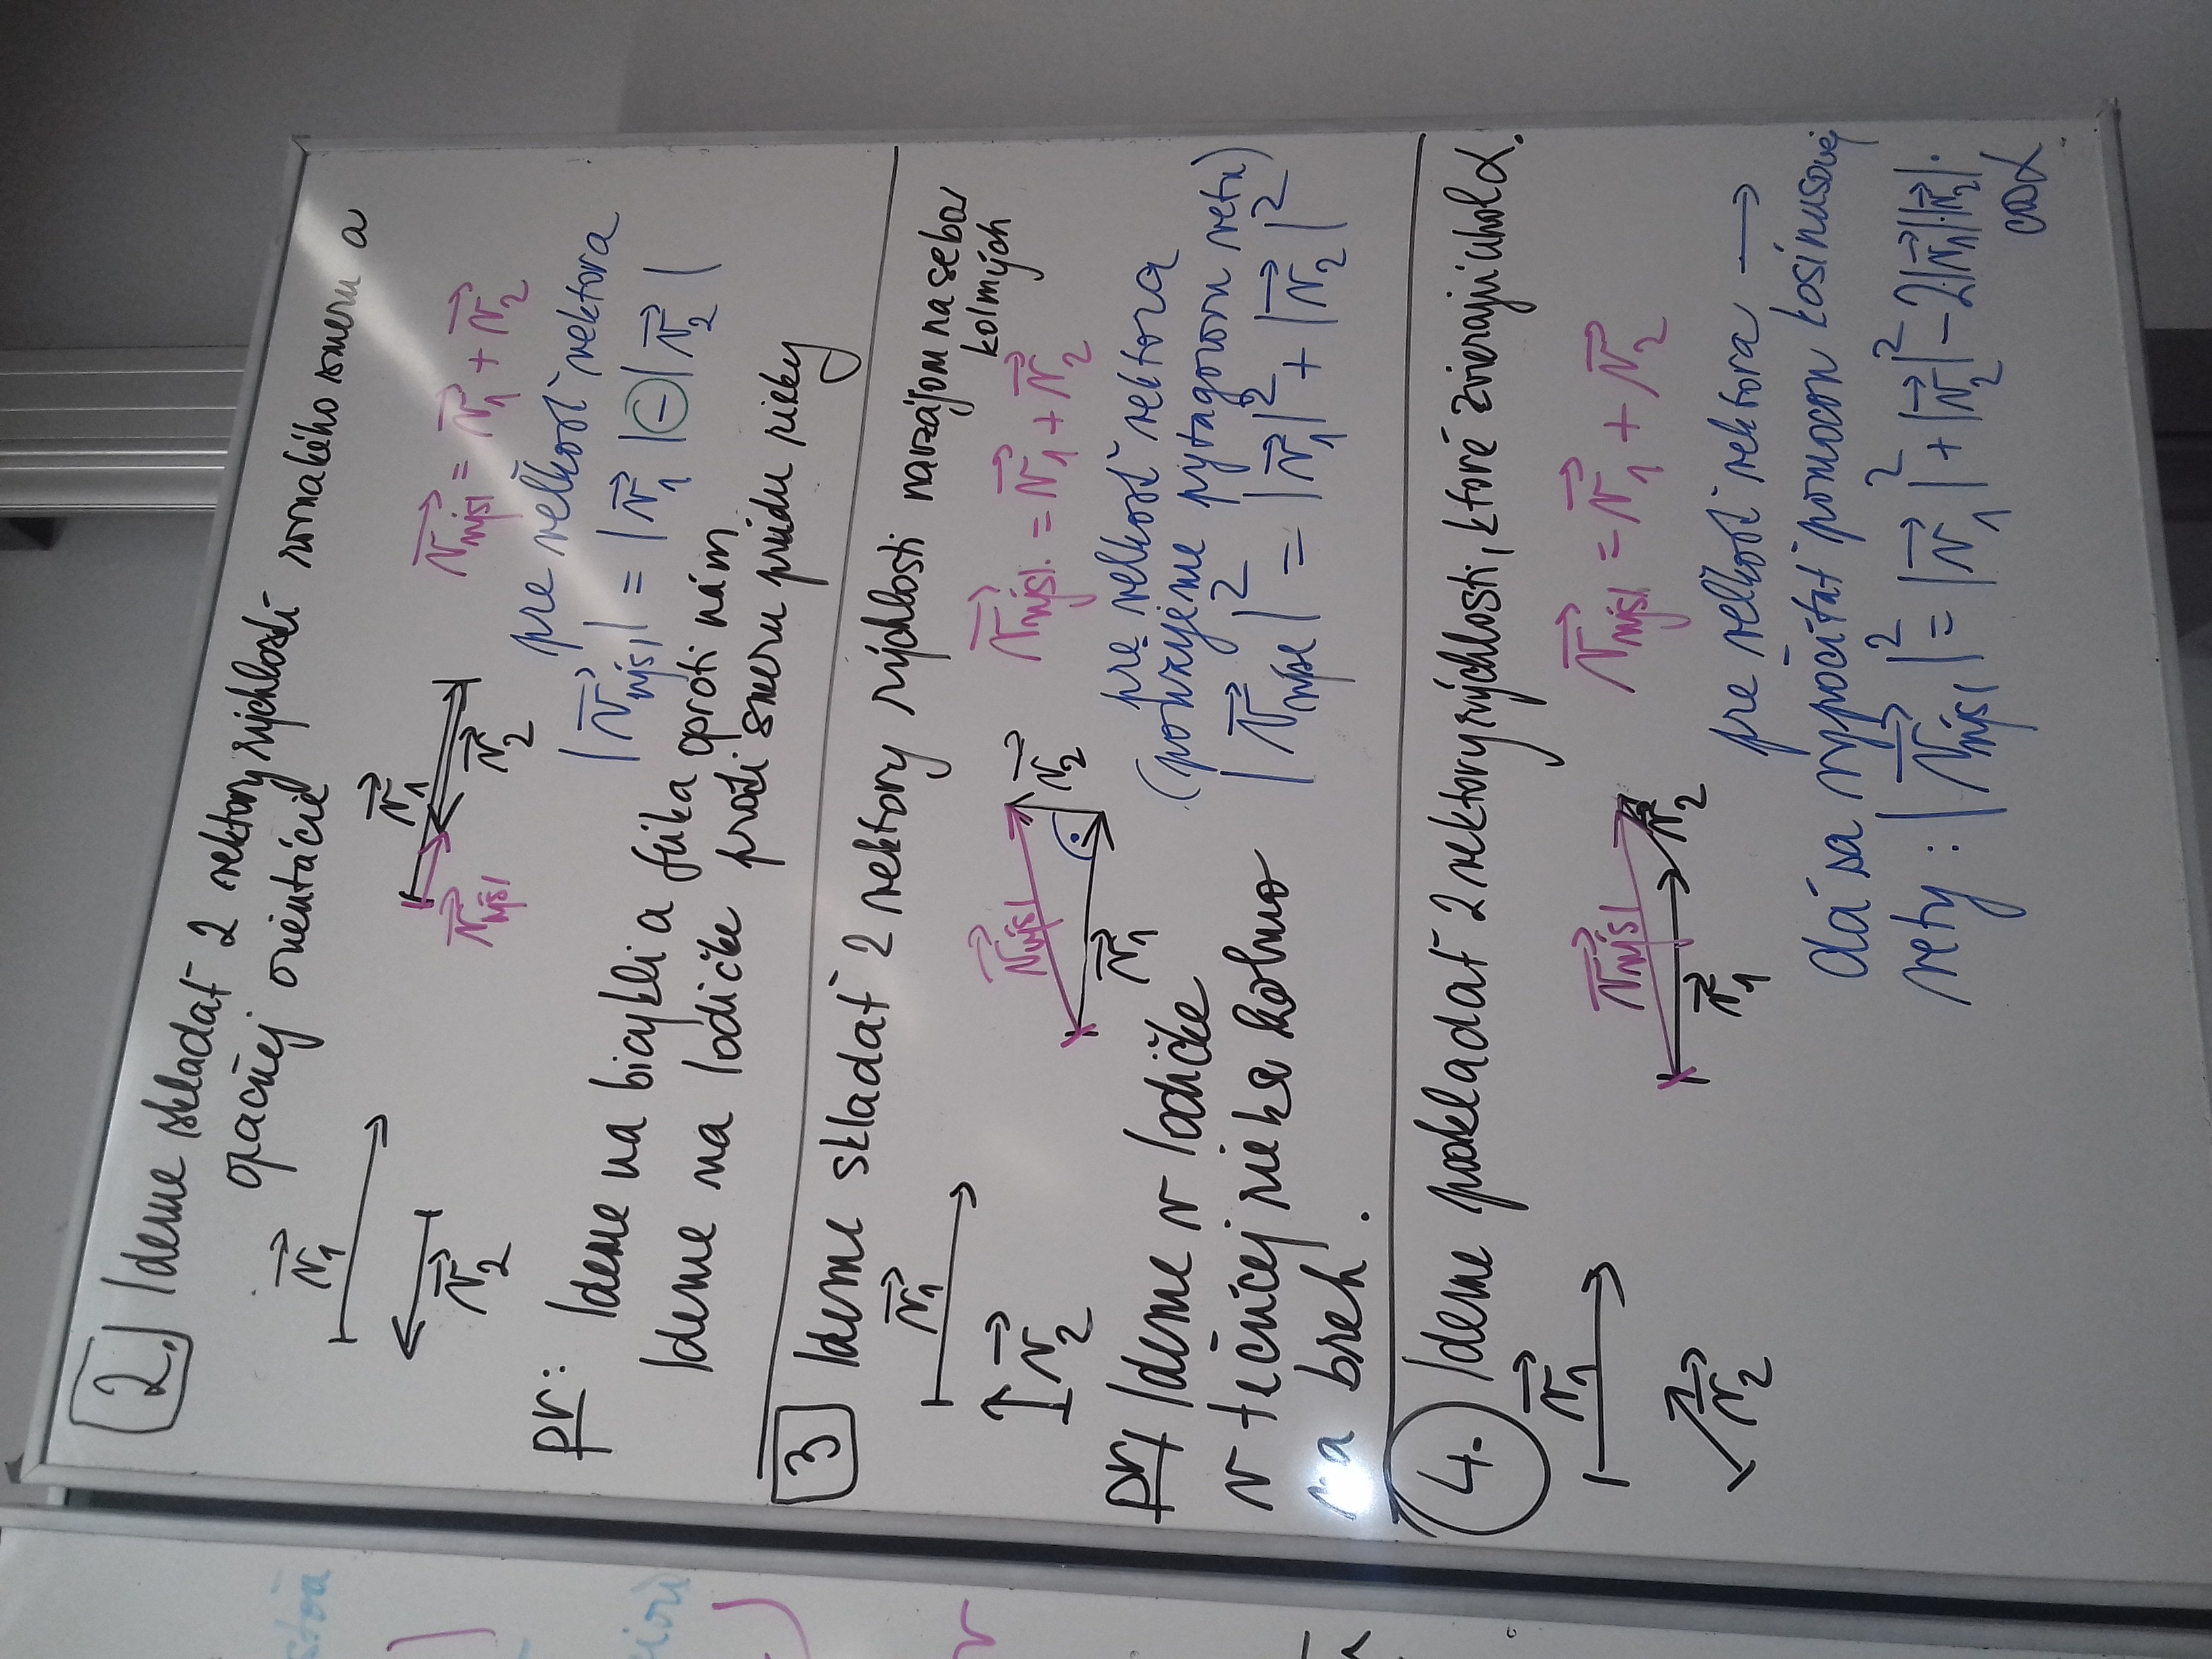 2. Ideme skladať 2 vektory rýchlosti rovnakého smeru a
opačnej orientácie
v⃗1
v⃗2
v⃗1
v⃗2
v⃗výsl
v⃗výsl = v⃗1 + v⃗2
pre veľkosť vektora
|v⃗výsl| = |v⃗1| - |v⃗2|
pr: Ideme na bicykli a fúka oproti nám
Ideme na lodičke proti smeru prúdu rieky
3 Ideme skladať 2 vektory rýchlosti navzájom na seba
kolmých
v⃗1
v⃗2
v⃗výsl
v⃗1
v⃗2
v⃗výsl. = v⃗1 + v⃗2
pre veľkosť vektora
(použijeme pytagorovu vetu)
|v⃗výsl|² = |v⃗1|² + |v⃗2|²
pr Ideme v lodičke
v tečúcej rieke kolmo
na breh.
4. Ideme poskladať 2 vektory rýchlosti, ktoré zvierajú uhol α.
v⃗1
v⃗2
v⃗výsl
v⃗1
v⃗2
v⃗výsl = v⃗1 + v⃗2
pre veľkosť vektora →
dá sa vypočítať pomocou kosínusovej
vety: |v⃗výsl|² = |v⃗1|² + |v⃗2|² - 2|v⃗1|.|v⃗2|.
cosα